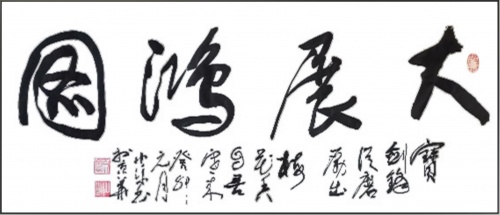 大展鸿图
寶
剑锋
從磨
砺出
梅
花香
自苦
寒来
癸卯
元月